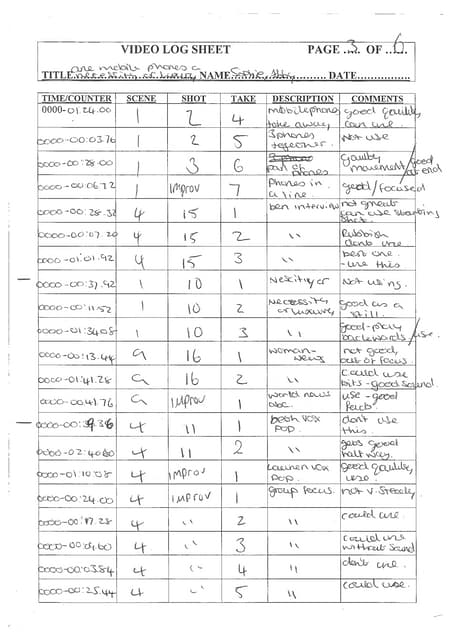 VIDEO LOG SHEET PAGE 3 OF 6
are mobile phones a
TITLE necessity or luxury NAME Sophie, Abby DATE
TIME/COUNTER SCENE SHOT TAKE DESCRIPTION COMMENTS
0000-01.24.00 1 2 4 mobile phone take away good quality, can use.
0000-00:03.76 1 2 5 3 phones together. Not use
0000-00:28.00 1 3 6 part of phones Quality movement/good at end
0000-00:06.72 1 Improv 7 phones in a line. good/focused
0000-00:28.32 4 15 1 ben interview not great can use starting shot.
0000-00:07.20 4 15 2 " Rubbish dont use
0000-01:01.92 4 15 3 " best one. - use this
0000-00:37.92 1 10 1 Not using.
0000-00:11.52 1 10 2 Necessity or luxury good as a still.
0000-01:34.08 1 10 3 " good-play backwards/use.
0000-00:13.44 9 16 1 woman- news not good, out of focus.
0000-01:41.28 9 16 2 " could use bits - good sound.
0000-00:41.76 9 Improv 1 world news abc. use - good
0000-00:39.36 4 11 1 vox pop. don't use this.
0000-02:40.80 4 11 2 " gets good half way.
0000-01:10.08 4 Improv 1 Lauren vox pop. good quality, use.
0000-00:24.00 4 Improv 1 group focus. not v. steady
0000-00:17.28 4 " 2 " could use.
4 " 3 " could use without sound
0000-00:03.84 4 " 4 " don't use.
0000-00:25.44 4 " 5 " could use.